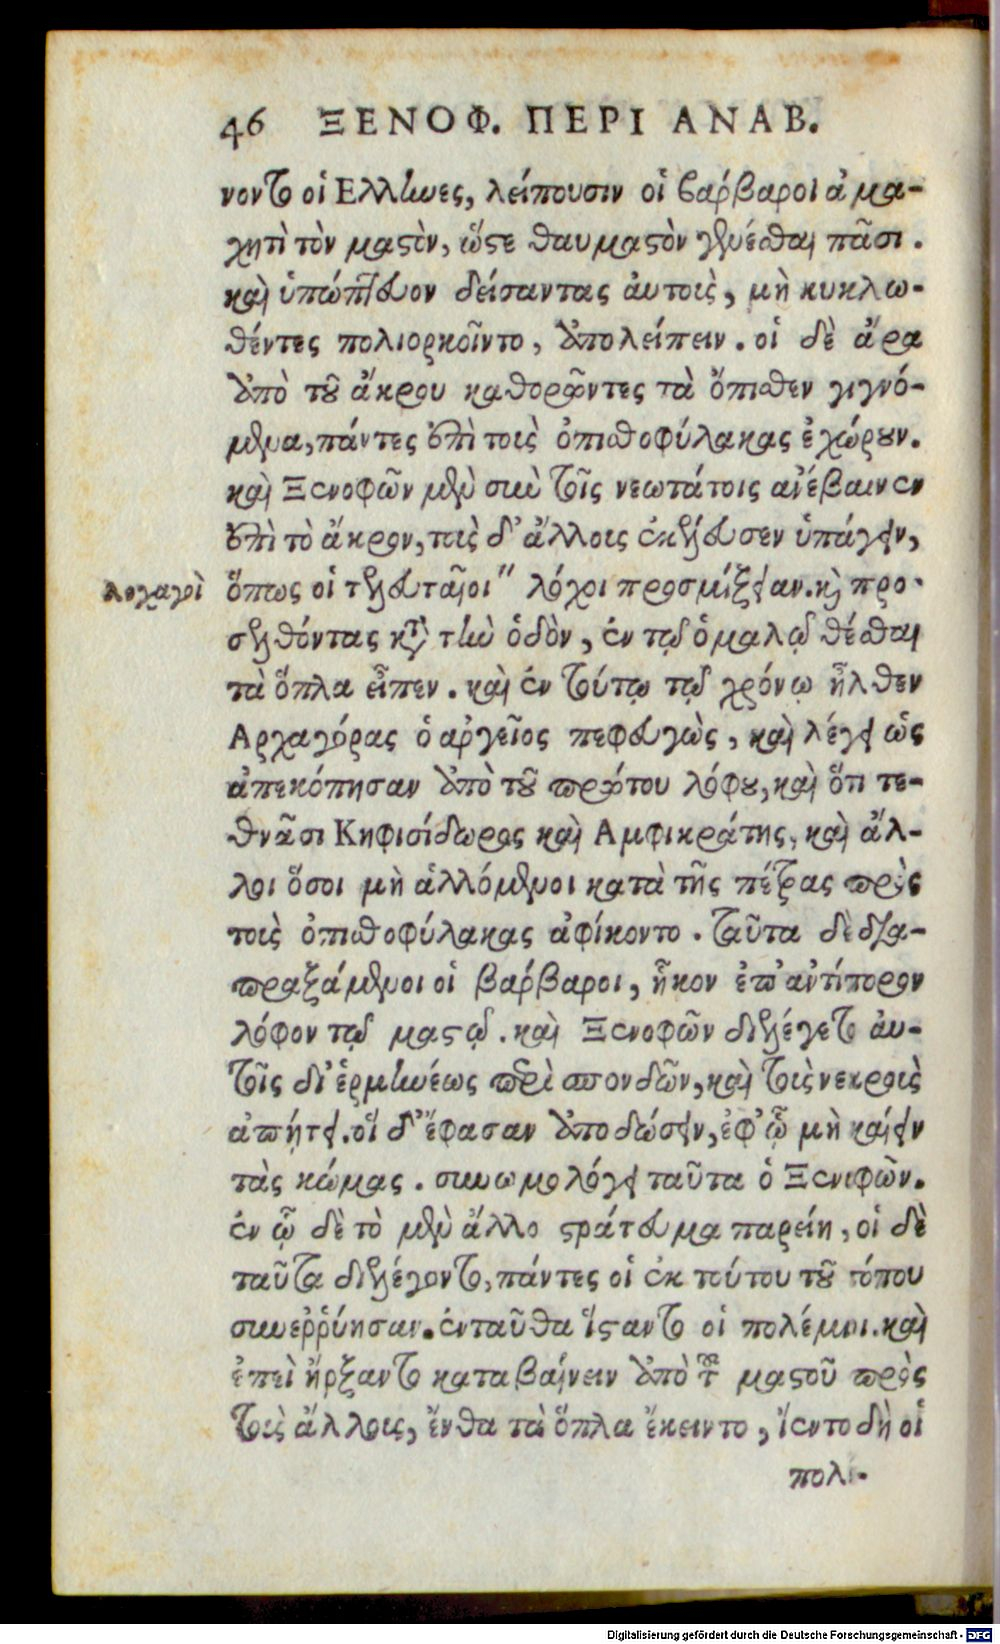 46 ΞΕΝΟΦ. ΠΕΡΙ ΑΝΑΒ.
νοντο οἱ Ελλωες, λείπουσιν οἱ βαρβαροι ἀμα-
χητὶ τὸν μαστὸν, ὥστε θαυμαστὸν γενέσθαι πᾶσι.
καὶ ὑπώπτευον δείσαντας ἀυτοὺς, μὴ κυκλω-
θέντες πολιορκοῖντο, ἀπολείπειν. οἱ δὲ ἄρα
ἀπὸ τοῦ ἄκρου καθορῶντες τὰ ὄπισθεν γιγνό-
μενα, πάντες ἐπὶ τοὺς ὀπισθοφύλακας ἐχώρουν.
καὶ Ξενοφῶν μὲν σὺν τοῖς νεωτάτοις ἀνέβαινεν
ἐπὶ τὸ ἄκρον, τοὺς δ' ἄλλοις ἐκέλευσεν ὑπάγειν,
Λοχαγοὶ
ὅπως οἱ τελευταῖοι " λόχοι προσμίξειαν. καὶ προ-
σελθόντας κατὰ τὴν ὁδὸν, ἐν τῷ ὁμαλῷ θέσθαι
τὰ ὅπλα εἶπεν. καὶ ἐν τούτῳ τῷ χρόνῳ ἦλθεν
Αρχαγόρας ὁ ἀργεῖος πεφευγὼς, καὶ λέγει ὡς
ἀπεκόπησαν ἀπὸ τοῦ πρώτου λόφου, καὶ ὅτι τε-
θνᾶσι Κηφισίδωρος καὶ Αμφικράτης, καὶ ἄλ-
λοι ὅσοι μὴ ἁλλόμενοι κατὰ τῆς πέτρας πρὸς
τοὺς ὀπισθοφύλακας ἀφίκοντο. ταῦτα δὲ δια-
πραξάμενοι οἱ βαρβαροι, ἧκον ἐπ' ἀντίπορον
λόφον τῷ μαστῷ. καὶ Ξενοφῶν διελέγετο ἀυ-
τοῖς δι' ἑρμηνέως περὶ σπονδῶν, καὶ τοὺς νεκροὺς
ἀπῄτει. οἵ δ' ἔφασαν ἀποδώσειν, ἐφ' ᾧ μὴ καίειν
τὰς κώμας. συνωμολόγει ταῦτα ὁ Ξενιφῶν.
ἐν ᾧ δὲ τὸ μὲν ἄλλο στράτευμα παρείη, οἱ δὲ
ταῦτα διελέγοντο, πάντες οἱ ἐκ τούτου τοῦ τόπου
συνερρύησαν. ἐνταῦθα ἵσταντο οἱ πολέμιοι. καὶ
ἐπεὶ ἤρξαντο καταβαίνειν ἀπὸ τοῦ μαστοῦ πρὸς
τοὺς ἄλλοις, ἔνθα τὰ ὅπλα ἔκειντο, ἵεντο δὴ οἱ
πολέ-
Digitalisierung gefördert durch die Deutsche Forschungsgemeinschaft - DFG